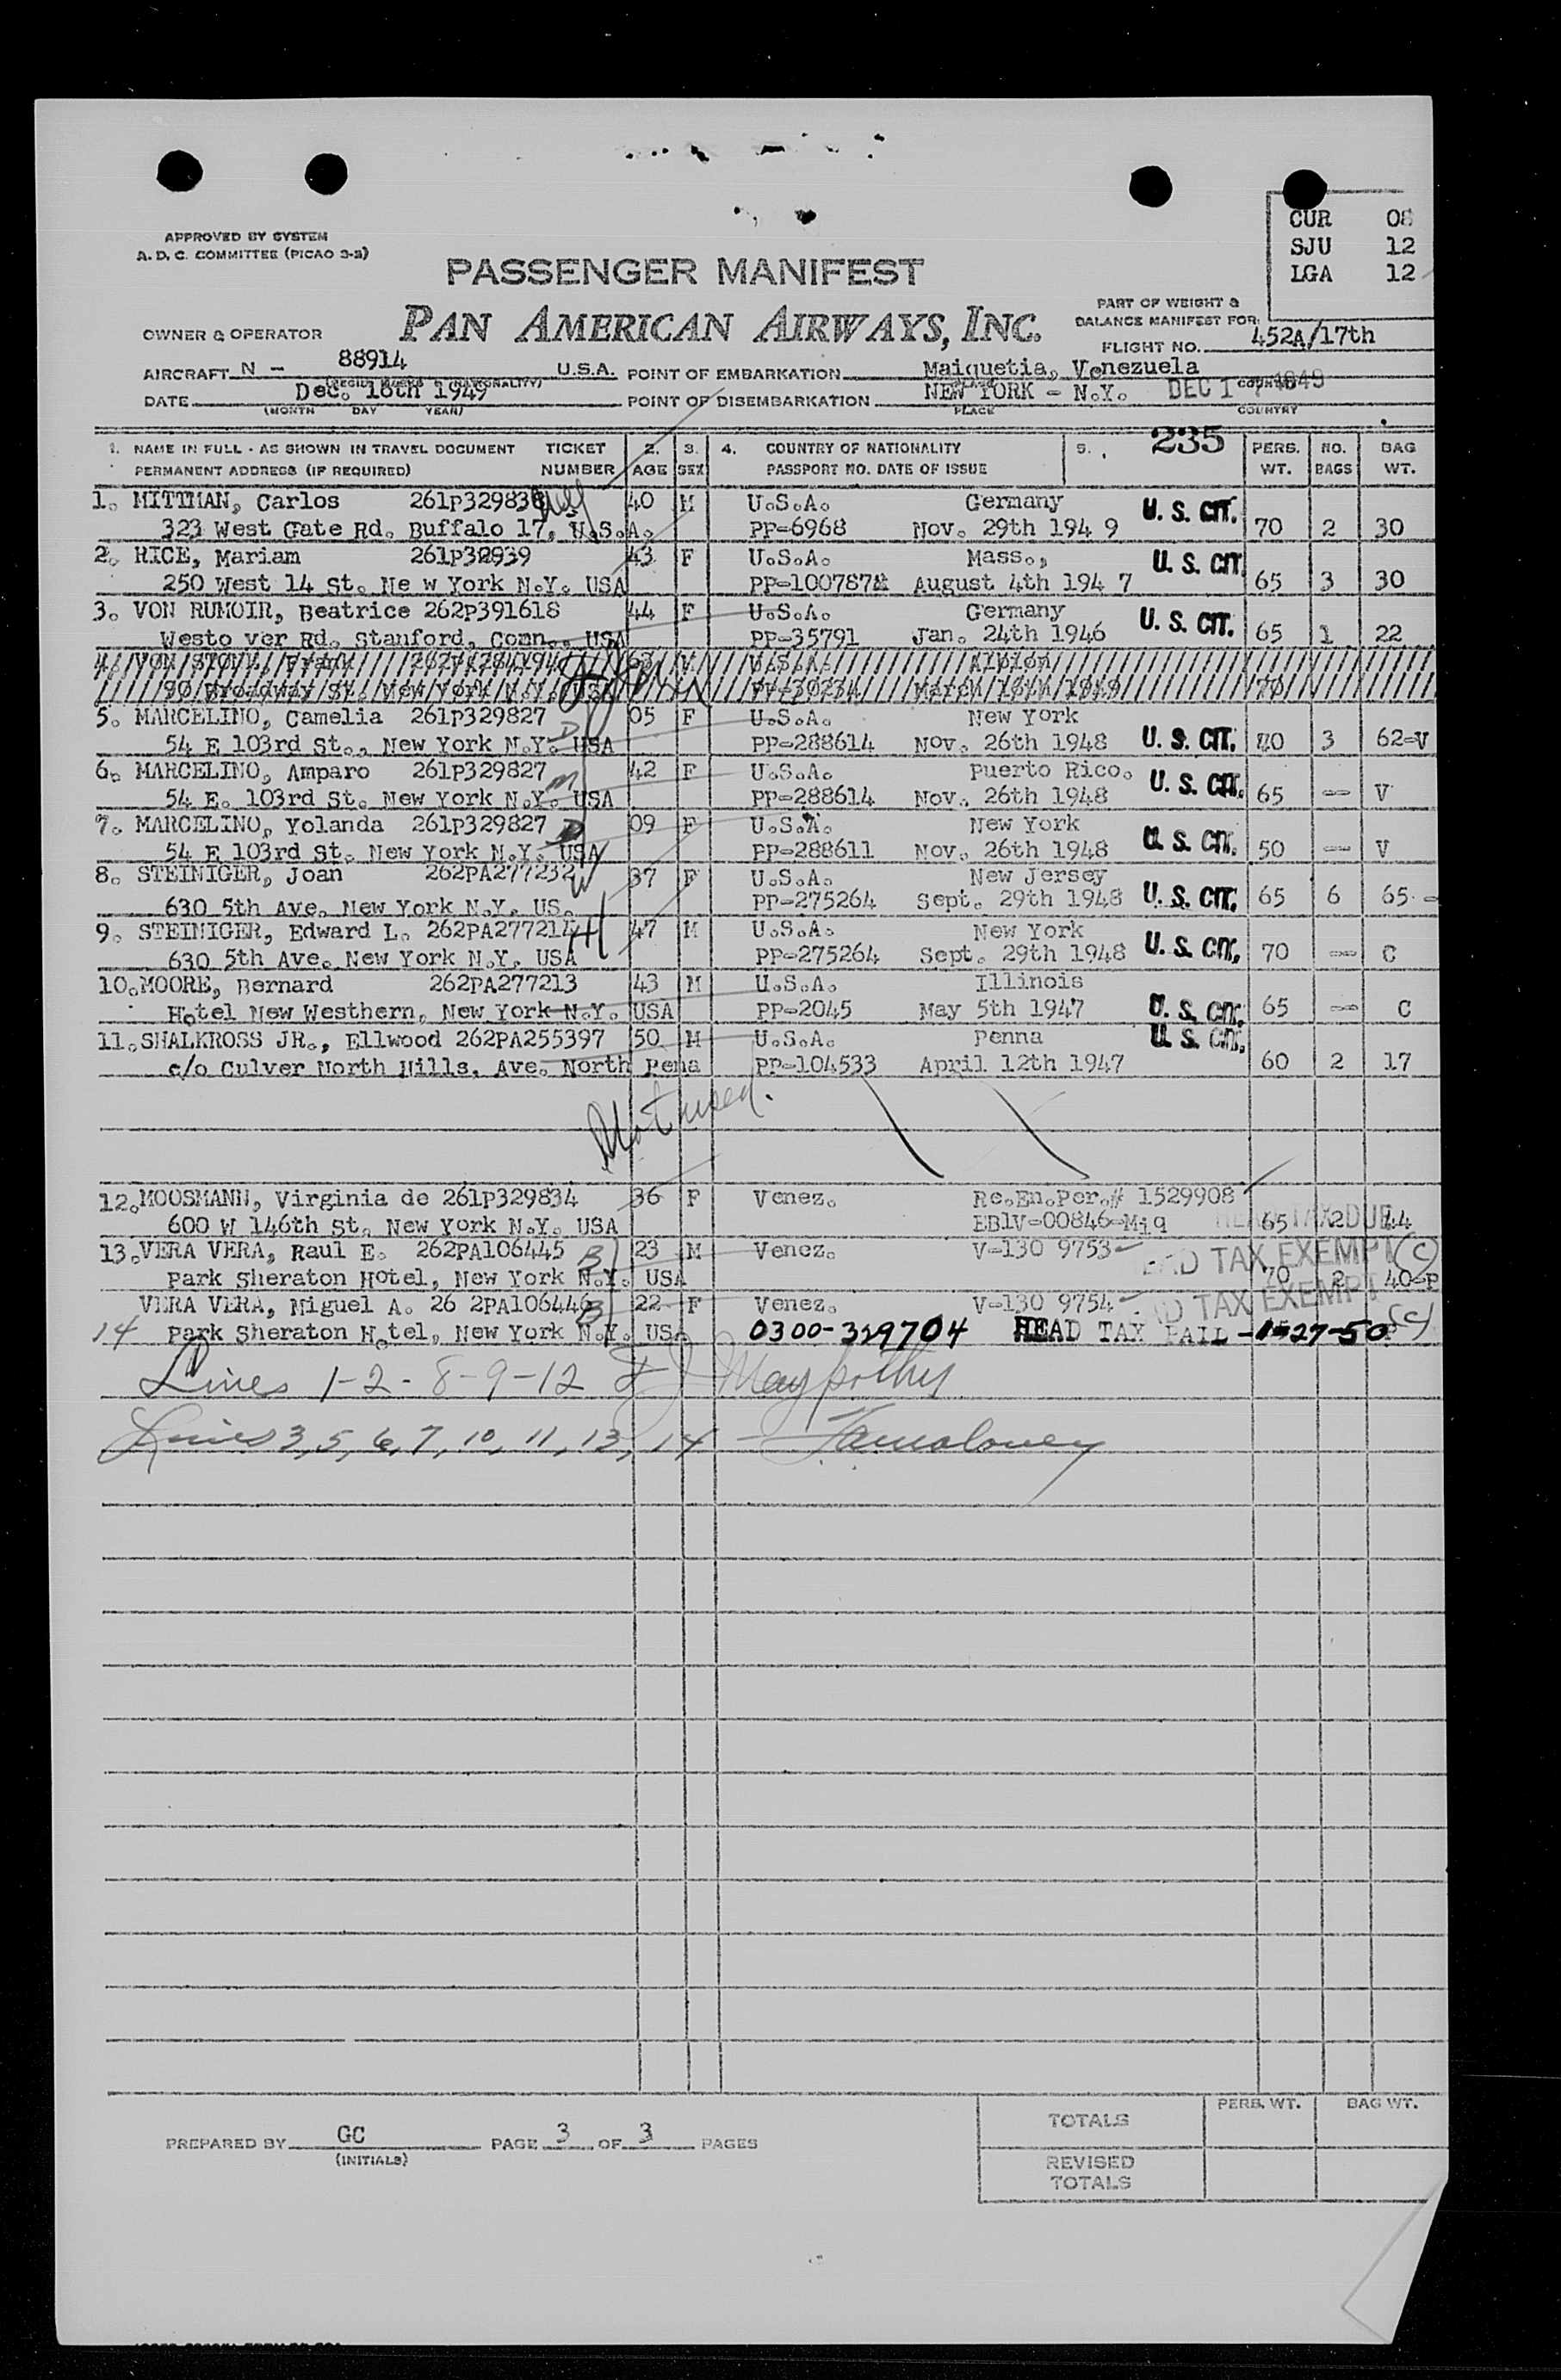 APPROVED BY SYSTEM
A. D. C. COMMITTEE (PICAO 3-3)
CUR 08
SJU 12
LGA 12
PASSENGER MANIFEST
PAN AMERICAN AIRWAYS, INC.
OWNER & OPERATOR
PART OF WEIGHT &
BALANCE MANIFEST FOR:
FLIGHT NO. 452A/17th
AIRCRAFT N - 88914 U.S.A. POINT OF EMBARKATION Maiquetia, Venezuela
DATE Dec. 18th 1949 POINT OF DISEMBARKATION NEW YORK - N.Y. DEC 1 1949
(MONTH DAY YEAR) PLACE COUNTRY
1. NAME IN FULL - AS SHOWN IN TRAVEL DOCUMENT TICKET 2. 3. 4. COUNTRY OF NATIONALITY 5. 235 PERS. NO. BAG
PERMANENT ADDRESS (IF REQUIRED) NUMBER AGE SEX PASSPORT NO. DATE OF ISSUE WT. BAGS WT.
1. MITTMAN, Carlos 261P32983 40 M U.S.A. Germany U. S. CIT.
323 West Gate Rd. Buffalo 17, U.S.A. PP-6968 Nov. 29th 194 9 70 2 30
2. RICE, Mariam 43 F U.S.A. Mass., U. S. CIT
250 West 14 St. Ne w York N.Y. USA August 4th 194 7 65 3 30
3. VON RUMOIR, Beatrice 262P391618 44 F U.S.A. Germany U. S. CIT.
Westo ver Rd. Stanford, Conn., USA PP-35791 Jan. 24th 1946 65 1 22
5. MARCELINO, Camelia 261P329827 05 F U.S.A. New York
54 E 103rd St., New York N.Y. USA PP-288614 Nov. 26th 1948 U. S. CIT. 3 62-V
6. MARCELINO, Amparo 261P329827 42 F U.S.A. Puerto Rico.
54 E. 103rd St. New York N.Y. USA PP-288614 Nov. 26th 1948 U. S. CIT. 65 -- V
7. MARCELINO, Yolanda 261P329827 09 F U.S.A. New York
54 E 103rd St. New York N.Y. USA PP-288611 Nov. 26th 1948 U. S. CIT. 50 -- V
8. STEINIGER, Joan 262PA277232 37 F U.S.A. New Jersey
630 5th Ave. New York N.Y. US. PP-275264 Sept. 29th 1948 U. S. CIT. 65 6 65
9. STEINIGER, Edward L. 262PA277214 47 M U.S.A. New York
630 5th Ave. New York N.Y. USA PP-275264 Sept. 29th 1948 U. S. CIT. 70 -- C
10. MOORE, Bernard 262PA277213 43 M U.S.A. Illinois
Hotel New Westhern, New York N.Y. USA PP-2045 May 5th 1947 U. S. CIT. 65 -- C
11. SHALKROSS JR., Ellwood 262PA255397 50 M U.S.A. Penna U. S. CIT.
c/o Culver North Hills, Ave. North Pena PP-104533 April 12th 1947 60 2 17
Not used.
12. MOOSMANN, Virginia de 261P329834 36 F Venez. Re.En.Per.# 1529908
600 W 146th St. New York N.Y. USA EB1V-00846-Miq 65 2 44
13. VERA VERA, Raul E. 262PA106445 B 23 M Venez. V-130 9753 HEAD TAX EXEMPT (C)
Park Sheraton Hotel, New York N.Y. USA 70 2 40-P
VERA VERA, Miguel A. 26 2PA106446 B 22 F Venez. V-130 9754 TAX EXEMPT
14 Park Sheraton Hotel, New York N.Y. USA 0300-329704 HEAD TAX PAID -1-27-50 (C)
Lines 1-2-8-9-12
Lines 3, 5, 6, 7, 10, 11, 13, 14
TOTALS PERS. WT. BAG WT.
PREPARED BY GC PAGE 3 OF 3 PAGES
(INITIALS)
REVISED
TOTALS